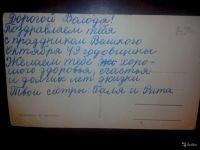 Дорогой Володя!
Поздравляем тебя
с праздником Великого
Октября 49 годовщины
Желаем тебе хоро-
шого здоровья, счастья
и долгих лет жизни
Твои сёстры: Галя и Рита
Avito